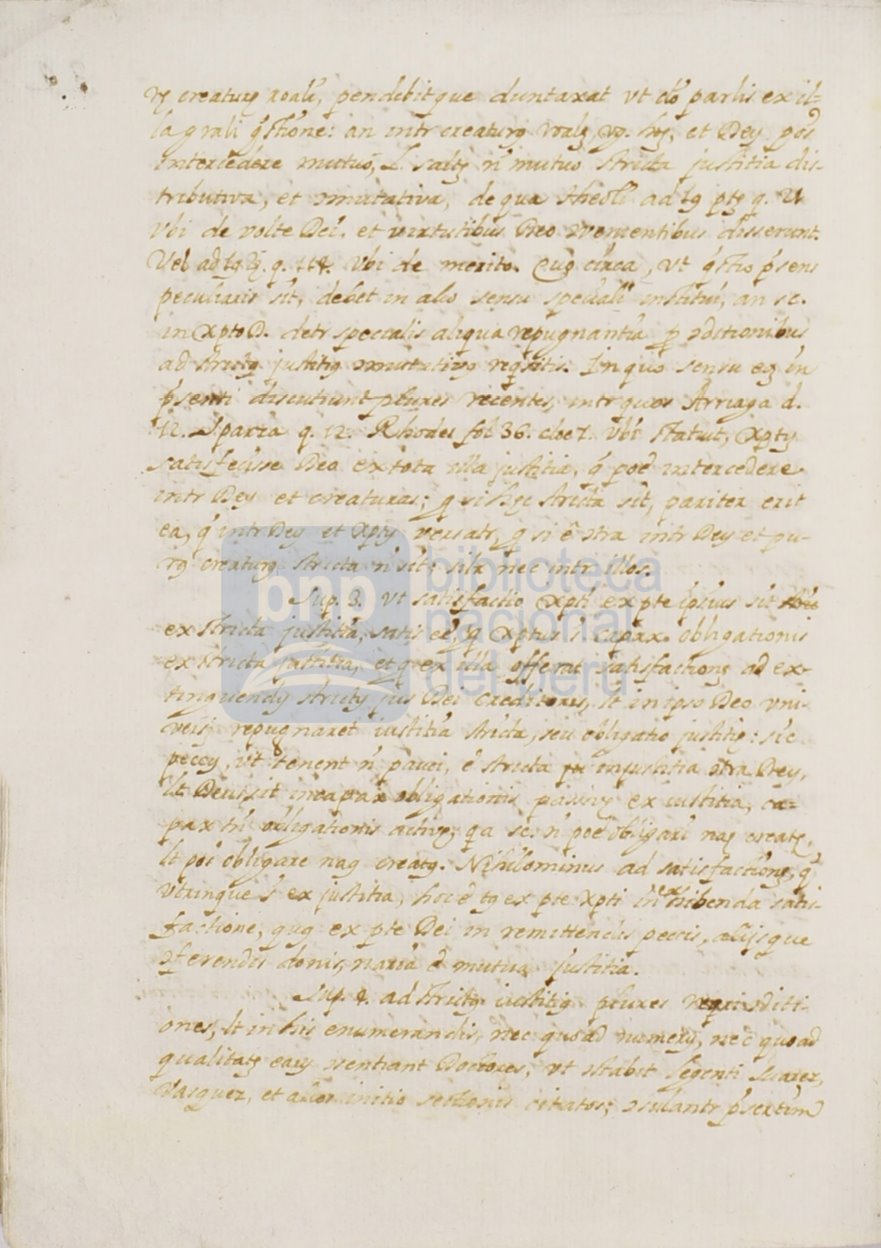 creaturę roali, pendebitque duntaxat vt clo parlis ex il-
la grali q̄stione: an intr creaturą roalę, vg. et Deų pos
intercedere mutuo, l. saltę n̄ mutuo stricta justitia dis-
tributiva, et ɔmutativa, de qua theoli ad 1ą ptę q. 21
vbi de volte Dei. et virtutibus Deo ɔvenientibus disserunt.
Vel ad 1ą 2ę. q. 114. vbi de merito. Quę circa, vt q̄stio p̄sens
peculiaris sit, debet in alio sensu speciali institui, an sc.
in Xpto D. detr specialis aliqua repugnantia p ɔditionibus
ad strictą justitią ɔmutativą reqsitis. In quo sensu eą in
p̄senti discutiunt plures recentes, intr quos Arriaga d.
12. Sparza q. 12. Rhodes fol 36. vbi statuit, Xptų
satisfecisse Deo ex tota illa justitia, q̄ poē intercedere
intr Deų et creaturas; q si hęc stricta sit, pariter erit
ea, q̄ intr Deų et Xptų versatr, q si ē ɔtra intr Deų et pu-
rą creaturą stricta n̄ sit; nec intr illos.
Sup. 3. vt satisfactio Xpti ex pte ipsius sit
ex stricta justitia, satis eē, q Xptus s̄ capax obligationis
ex stricta justitia, et q ex illa offerat satisfactionę ad ex-
tinguendų strictų jus Dei creditoris, lt in ipso Deo vni-
versį repugnaret iustitia stricta, seu obligatio justitię: sic
peccų, vt tenent n̄ pauci, ē stricta injustitia ɔtra Deų,
lt Deus sit incapax obligationis pasivę ex iustitia, ca-
pax tn̄ obligationis activę; qa sc. n̄ poē obligari naę creatę,
lt poē obligare naą creatą. Nihilominus ad satisfactionę, q̄
vtrinque s̄ ex justitia, hoc ē tą ex pte Xpti in exhibenda satis-
factione, quą ex pte Dei in remittendis peccis, alijsque
ɔferendis donis, naria ē mutua justitia.
Sup. 4. ad strictą iustitią plures reqri ɔditi-
ones, lt in his enumerandis, nec quoad numerų, nec quoad
qualitatę earų ɔveniant Doctores, vt stabit legenti Suarez,
Vasquez, et alios initio sectionis citatos; ɔsulantr p̄sertim
bnp biblioteca
nacional
del perú